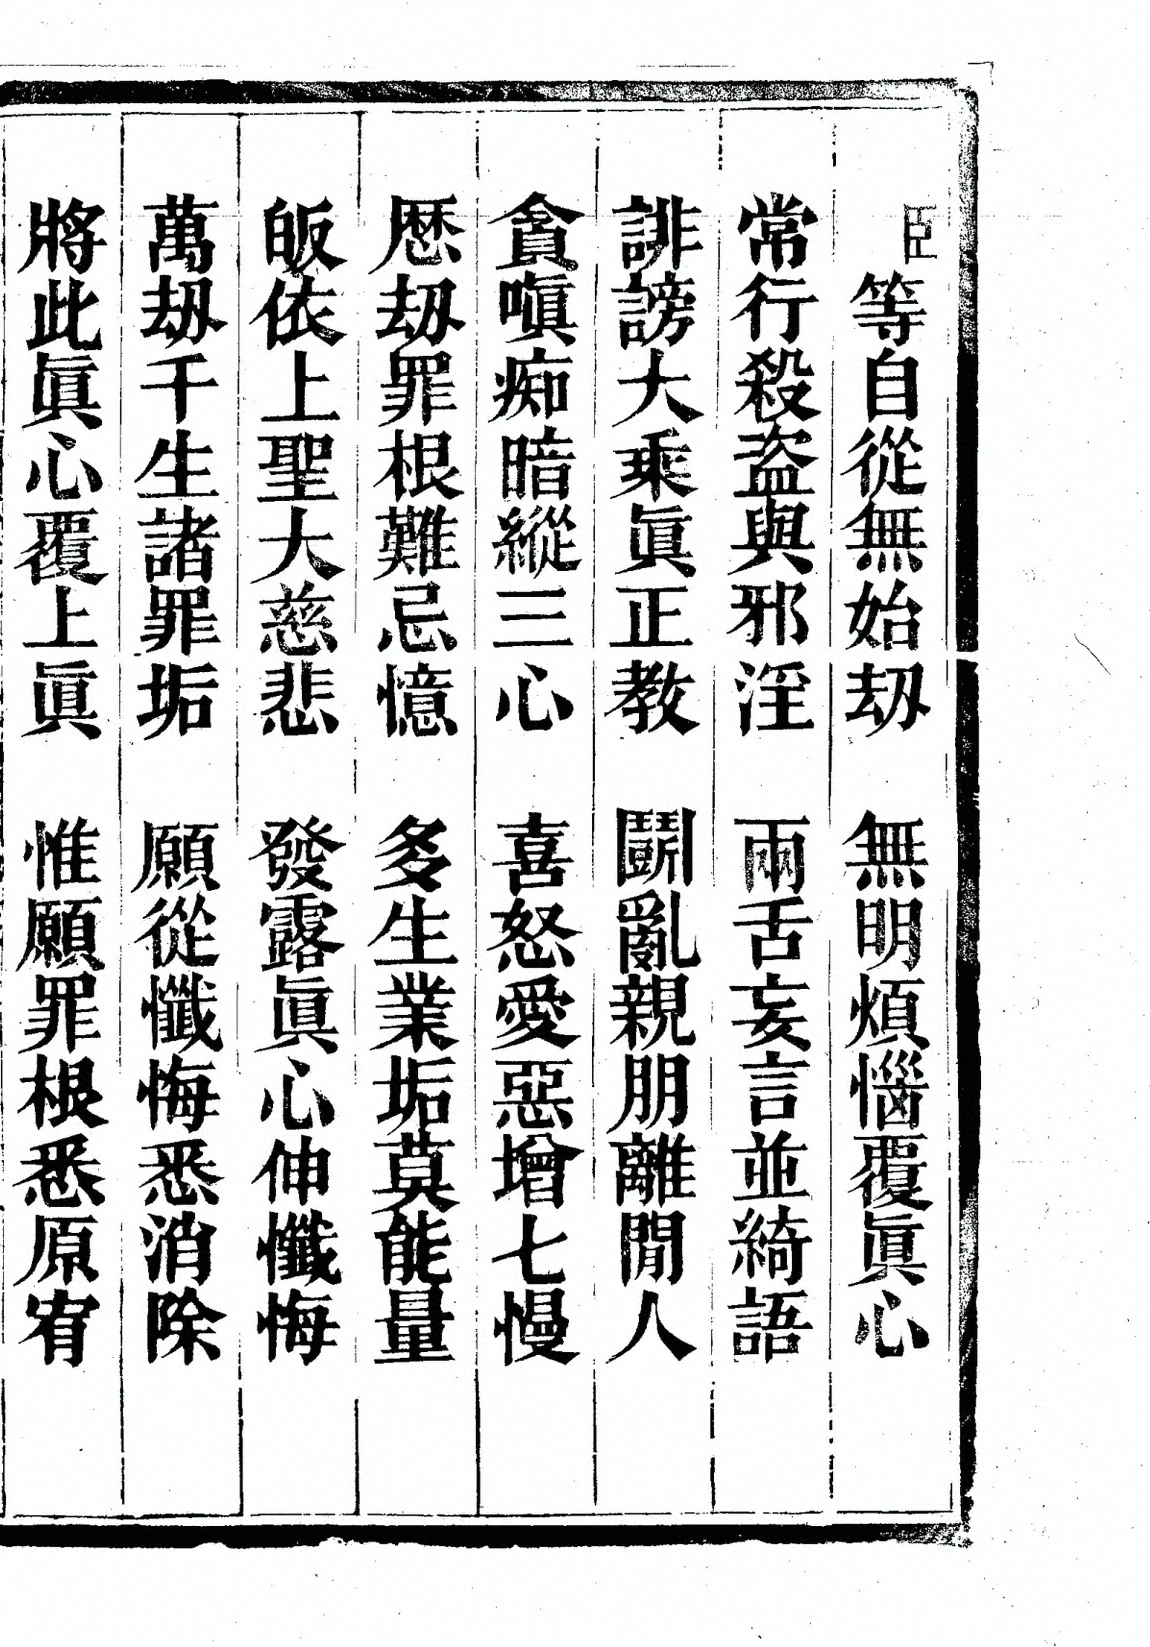 臣等自從無始刼　無明煩惱覆眞心
常行殺盗與邪淫　兩舌妄言並綺語
誹謗大乘眞正教　鬪亂親朋離閒人
貪嗔痴暗縱三心　喜怒愛惡增七慢
厯刼罪根難忌憶　多生業垢莫能量
皈依上聖大慈悲　發露眞心伸懺悔
萬刼千生諸罪垢　願從懺悔悉消除
將此眞心覆上眞　惟願罪根悉原宥